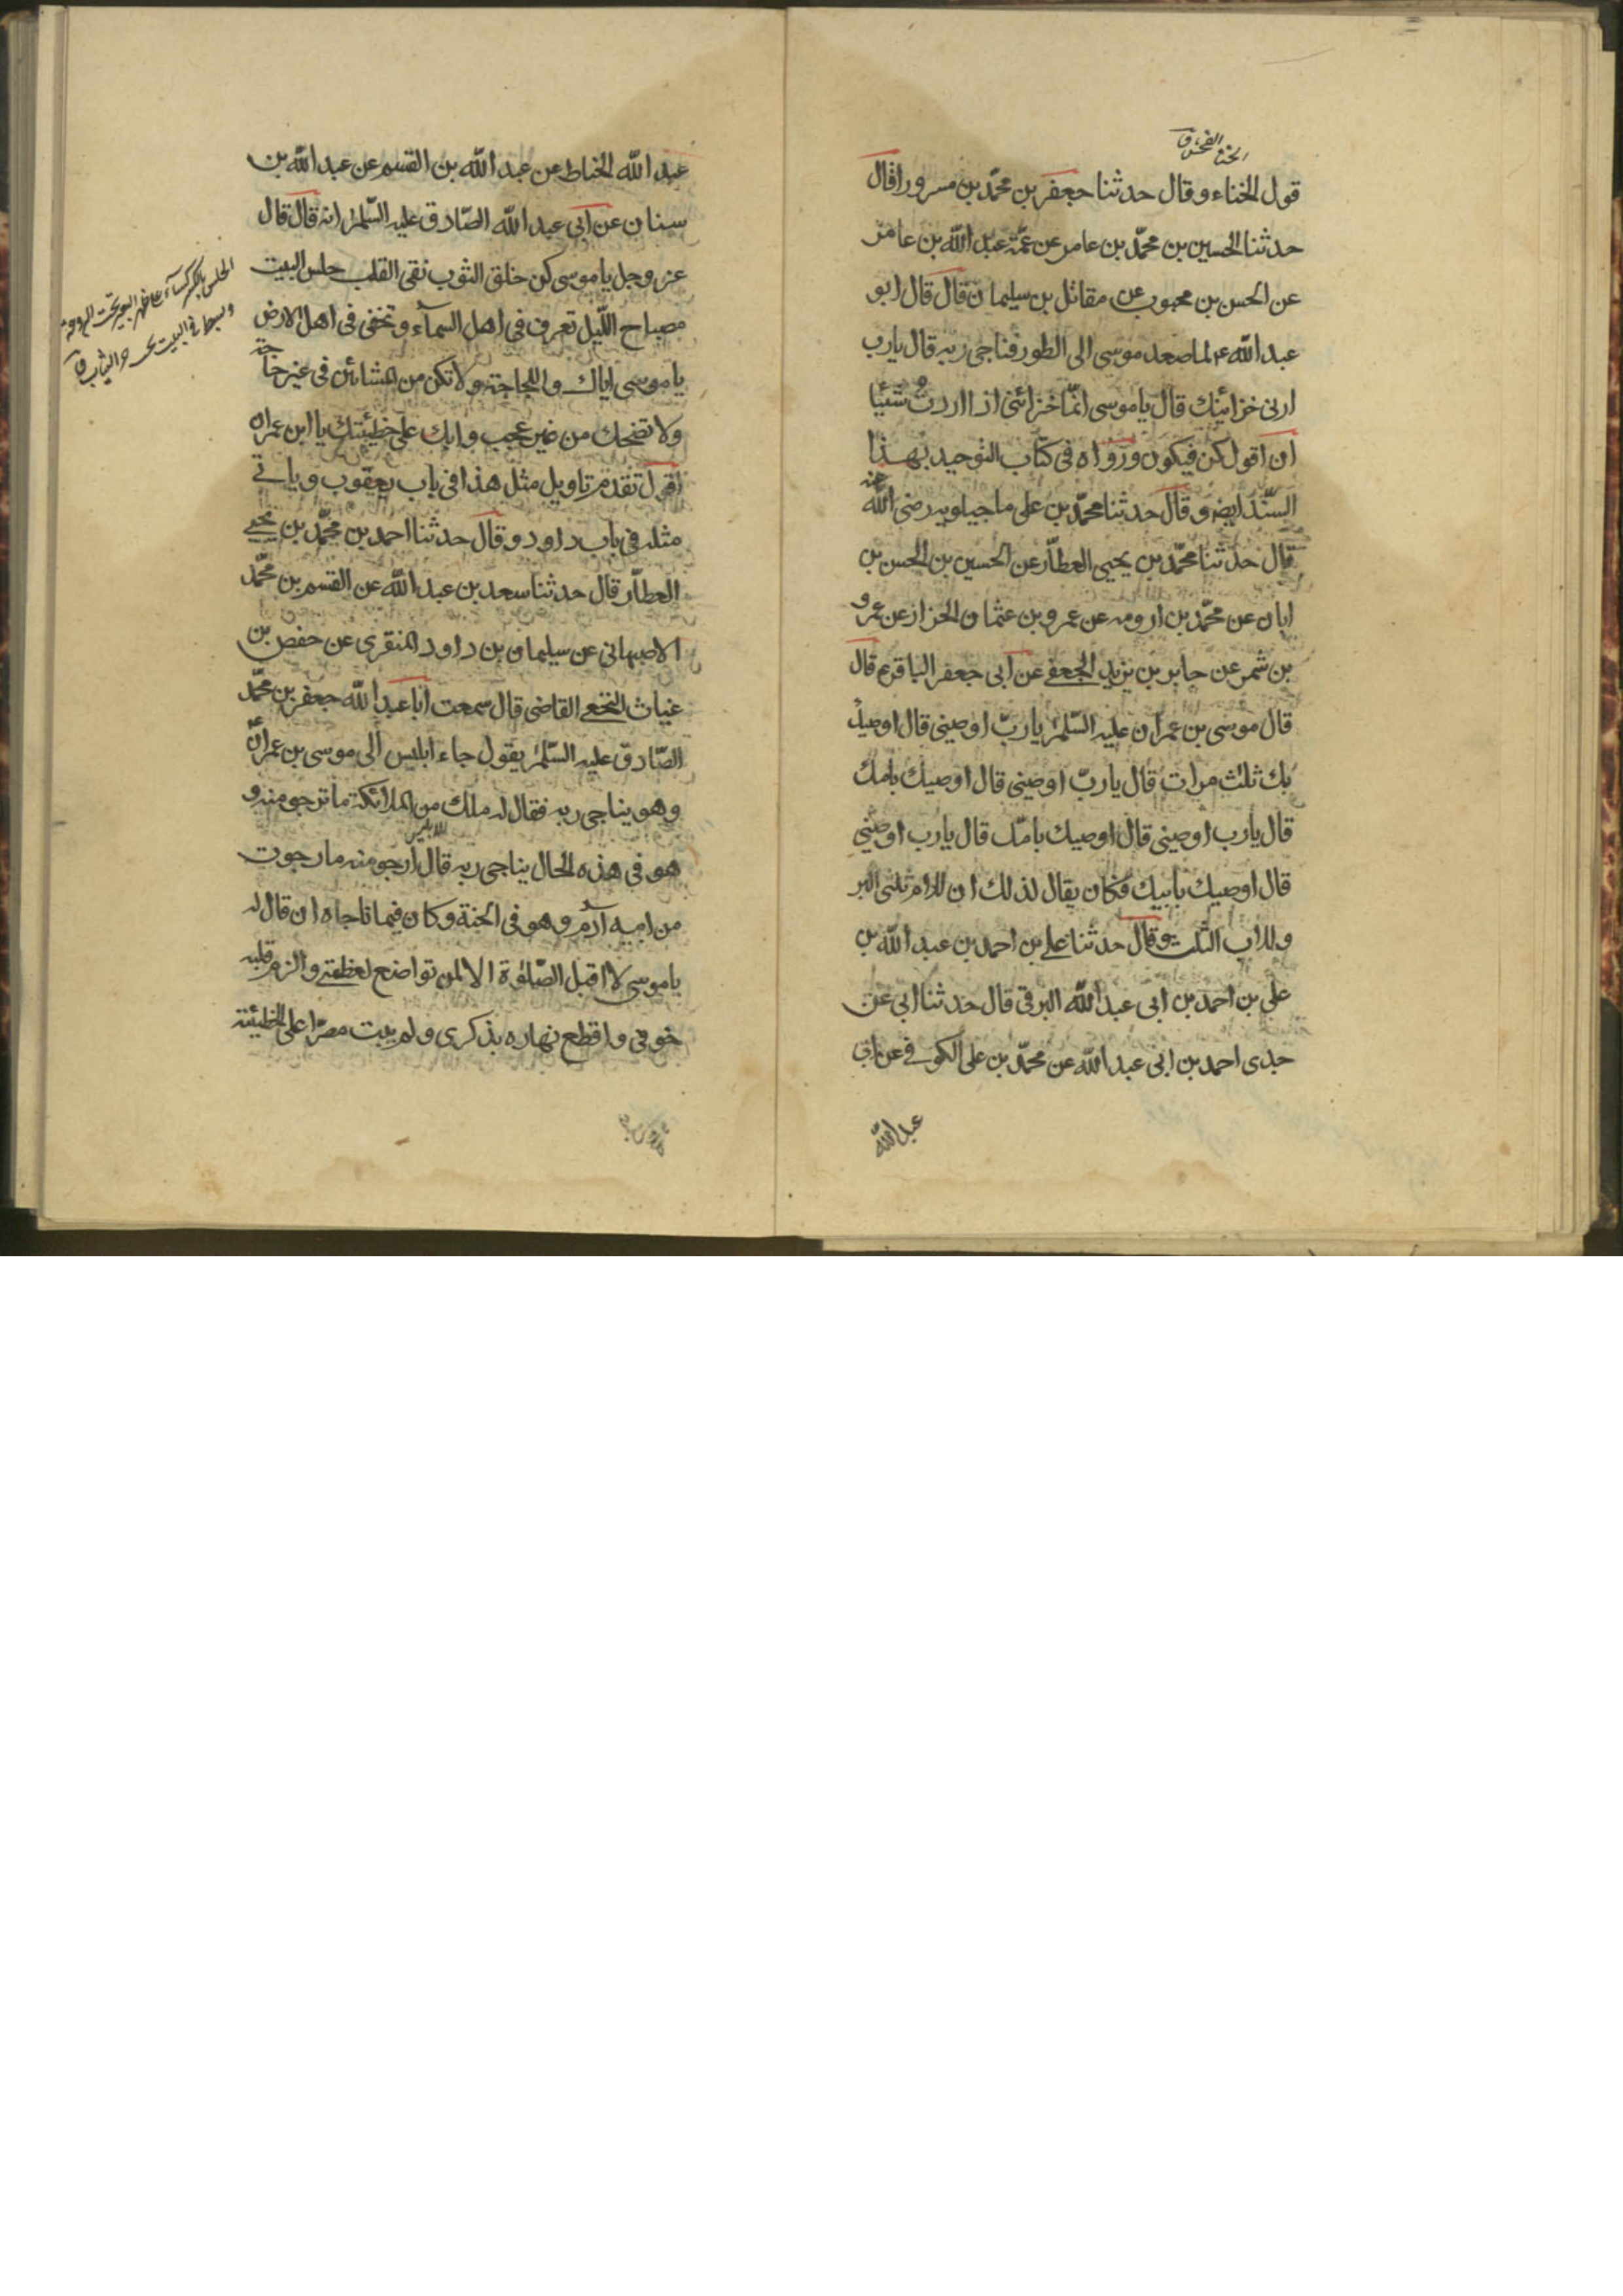 الخنا الفحش ق
قول الخناء وقال حدثنا جعفر بن محمّد بن مسرور اقال
حدثنا الحسين بن محمّد بن عامر عن عمّه عبد الله بن عامر
عن الحسن بن محبوب عن مقاتل بن سليمان قال قال ابو
عبد الله ع لما صعد موسى الى الطور فناجى ربه قال يارب
ارنى خزائنك قال ياموسى انمّا خزائنى اذا اردتُ شيئا
ان اقول كن فيكون ورواه فى كتاب التوحيد بهذا
السّند ايضه وقال حدثنا محمّد بن على ماجيلويه رضى الله عنه
قال حدثنا محمّد بن يحيى العطاّر عن الحسين بن الحسن بن
ابان عن محمّد بن ارومه عن عمرو بن عثمان الخزاز عن عمرو
بن شمر عن جابر بن يزيد الجعفے عن ابى جعفر الباقر ع قال
قال موسى بن عمران عليه السّلم يا ربّ اوصينى قال اوصيك
بك ثلث مرات قال يا ربّ اوصينى قال اوصيك بامك
قال يارب اوصينى قال اوصيك بامّك قال يارب اوصينى
قال اوصيك بابيك فكان يقال لذلك ان للام ثلثى البر
وللاب الثلث وقال حدثنا على بن احمد بن عبد الله بن
على بن احمد بن ابى عبد الله البرقى قال حدثنا ابى عن
جدى احمد بن ابى عبد الله عن محمّد بن على الكوفے عن ابى
عبد الله
عبد الله الخياط عن عبد الله بن القسم عن عبد الله بن
سنان عن ابى عبد الله الصّادق عليه السّلم انه قال قال
عز وجل ياموسى كن خلق الثوب نقى القلب حلس البيت
مصباح اللّيل تعرف فى اهل السمآء وتخفى فى اهل الارض
ياموسى اياك واللجاجة ولا تكن من المشائين فى غير حاجة
ولا تضحك من غير عجب وابك على خطيئتك يا ابن عمران
اقول تقدم تاويل مثل هذا فى باب يعقوب وياتے
مثله فى باب داود وقال حدثنا احمد بن محمّد بن يحيے
العطاّر قال حدثنا سعد بن عبد الله عن القسم بن محمّد
الاصبهانى عن سليمان بن داود المنقرى عن حفص بن
غياث النخعے القاضى قال سمعت ابا عبد الله جعفر بن محمّد
الصّادق عليه السّلم يقول جاء ابليس الى موسى بن عمران
وهو يناجى ربه فقال له ملك من الملائكة ما ترجو منه و
هو فى هذه الحال يناجى ربه قال ارجو منه ما رجوت
من ابيه آدم وهو فى الجنة وكان فيما ناجاه ان قال له
ياموسى لا اقبل الصّلوٰة الا لمن تواضع لعظمتے والزم قلبه
خوفى واقطع نهاره بذكرى ولم يبت مصرّا على الخطيئة
الحلس بالكسر كسآء على ظهر البعير تحت البردعة
ويبسط فى البيت تحت حر الثياب ق